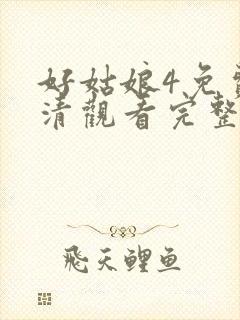 好姑娘4免费
清觀看完整
飛天鯉魚